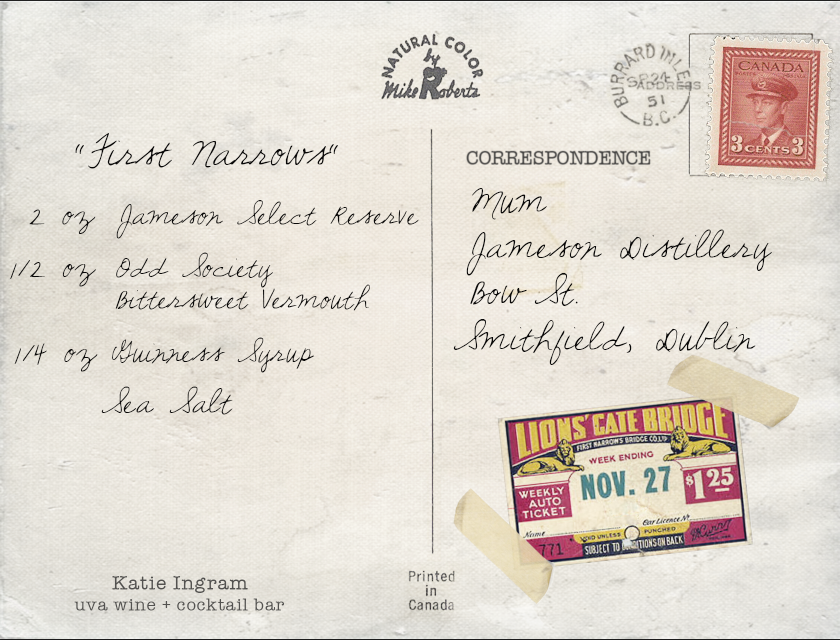 NATURAL COLOR
by
Mike Roberts
BURRARD INLET
51
B.C.
CANADA
3 CENTS 3
"First Narrows"
2 oz Jameson Select Reserve
1/2 oz Odd Society
Bittersweet Vermouth
1/4 oz Guinness Syrup
Sea Salt
Katie Ingram
uva wine + cocktail bar
Printed
in
Canada
CORRESPONDENCE
Mum
Jameson Distillery
Bow St.
Smithfield, Dublin
LIONS' GATE BRIDGE
FIRST NARROWS BRIDGE CO. LTD
WEEK ENDING
NOV. 27
$1 25
WEEKLY
AUTO
TICKET
Name
Car Licence No
771
VOID UNLESS PUNCHED
SUBJECT TO CONDITIONS ON BACK